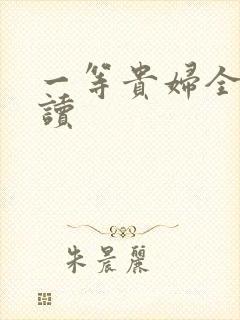 一等貴婦全
讀
朱晨麗